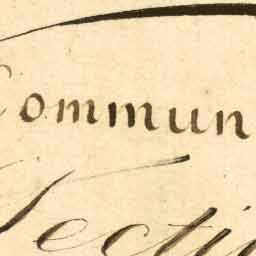 Commun
Secti